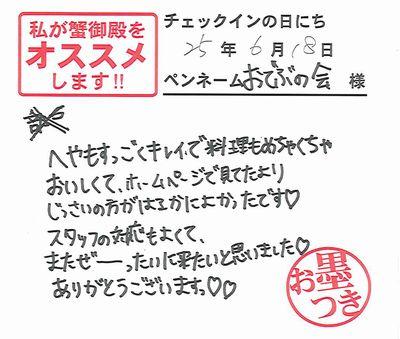 私が蟹御殿を
オススメ
します!!
チェックインの日にち
25年6月18日
ペンネームおでぶの会 様
へやもすっごくキレイで料理もめちゃくちゃ
おいしくて、ホームページで見てたより
じっさいの方がはるかによかったです♡
スタッフの対応もよくて、
またぜーったいに来たいと思いました♡
ありがとうございます。♡♡
お墨つき